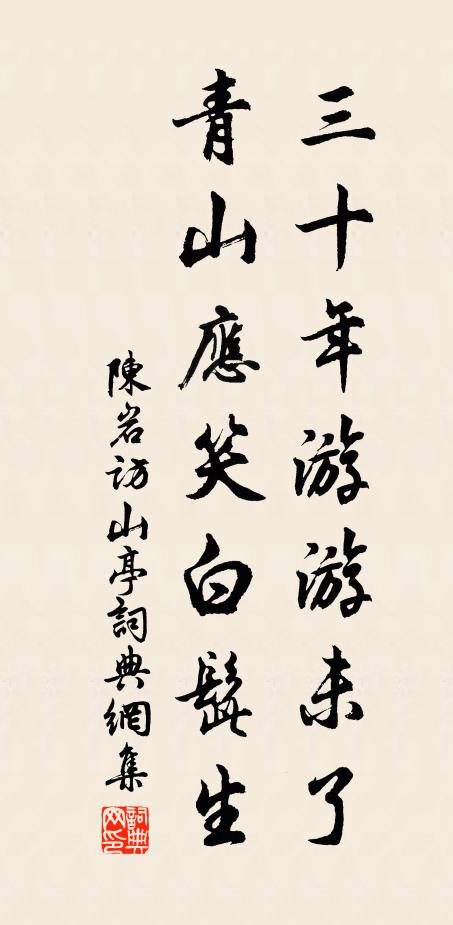 三十年游游未了
青山應笑白髭生
陳岩訪山亭詞典網集
詞典网印